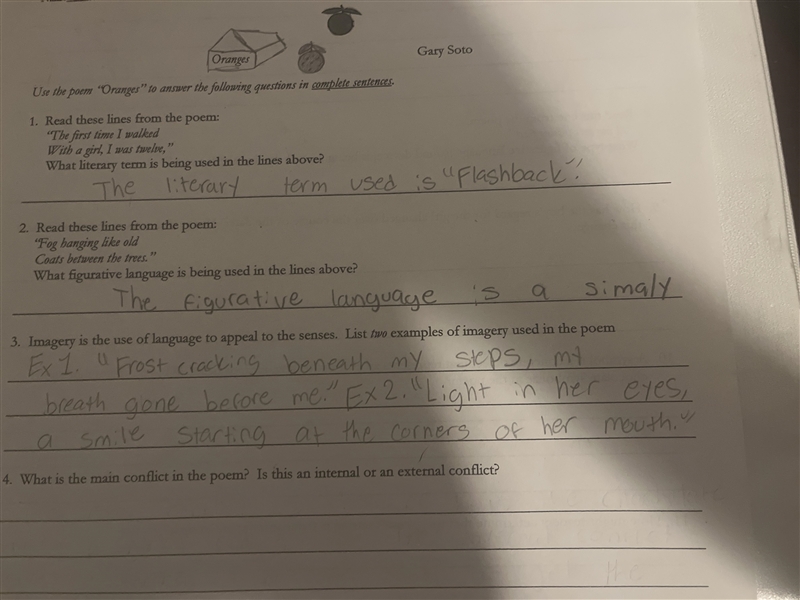 Oranges
Gary Soto
Use the poem "Oranges" to answer the following questions in complete sentences.
1. Read these lines from the poem:
"The first time I walked
With a girl, I was twelve,"
What literary term is being used in the lines above?
The literary term used is "Flashback".
2. Read these lines from the poem:
"Fog hanging like old
Coats between the trees."
What figurative language is being used in the lines above?
The figurative language is a simaly
3. Imagery is the use of language to appeal to the senses. List two examples of imagery used in the poem
Ex 1. "Frost cracking beneath my steps, my
breath gone before me." Ex 2. "Light in her eyes,
a smile starting at the corners of her mouth."
4. What is the main conflict in the poem? Is this an internal or an external conflict?